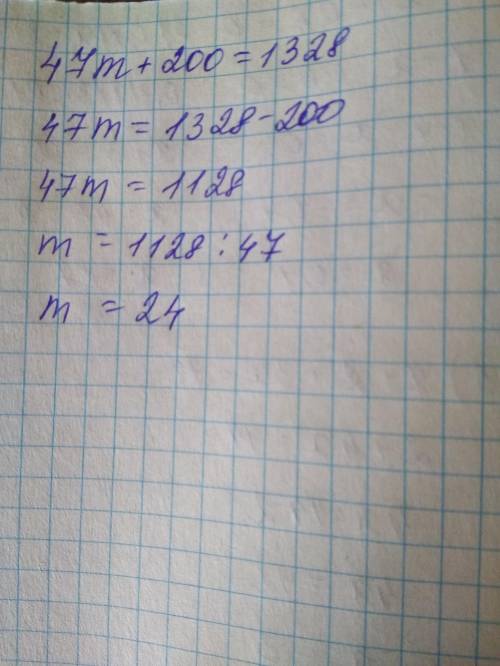 47m + 200 = 1328
47m = 1328 - 200
47m = 1128
m = 1128 : 47
m = 24